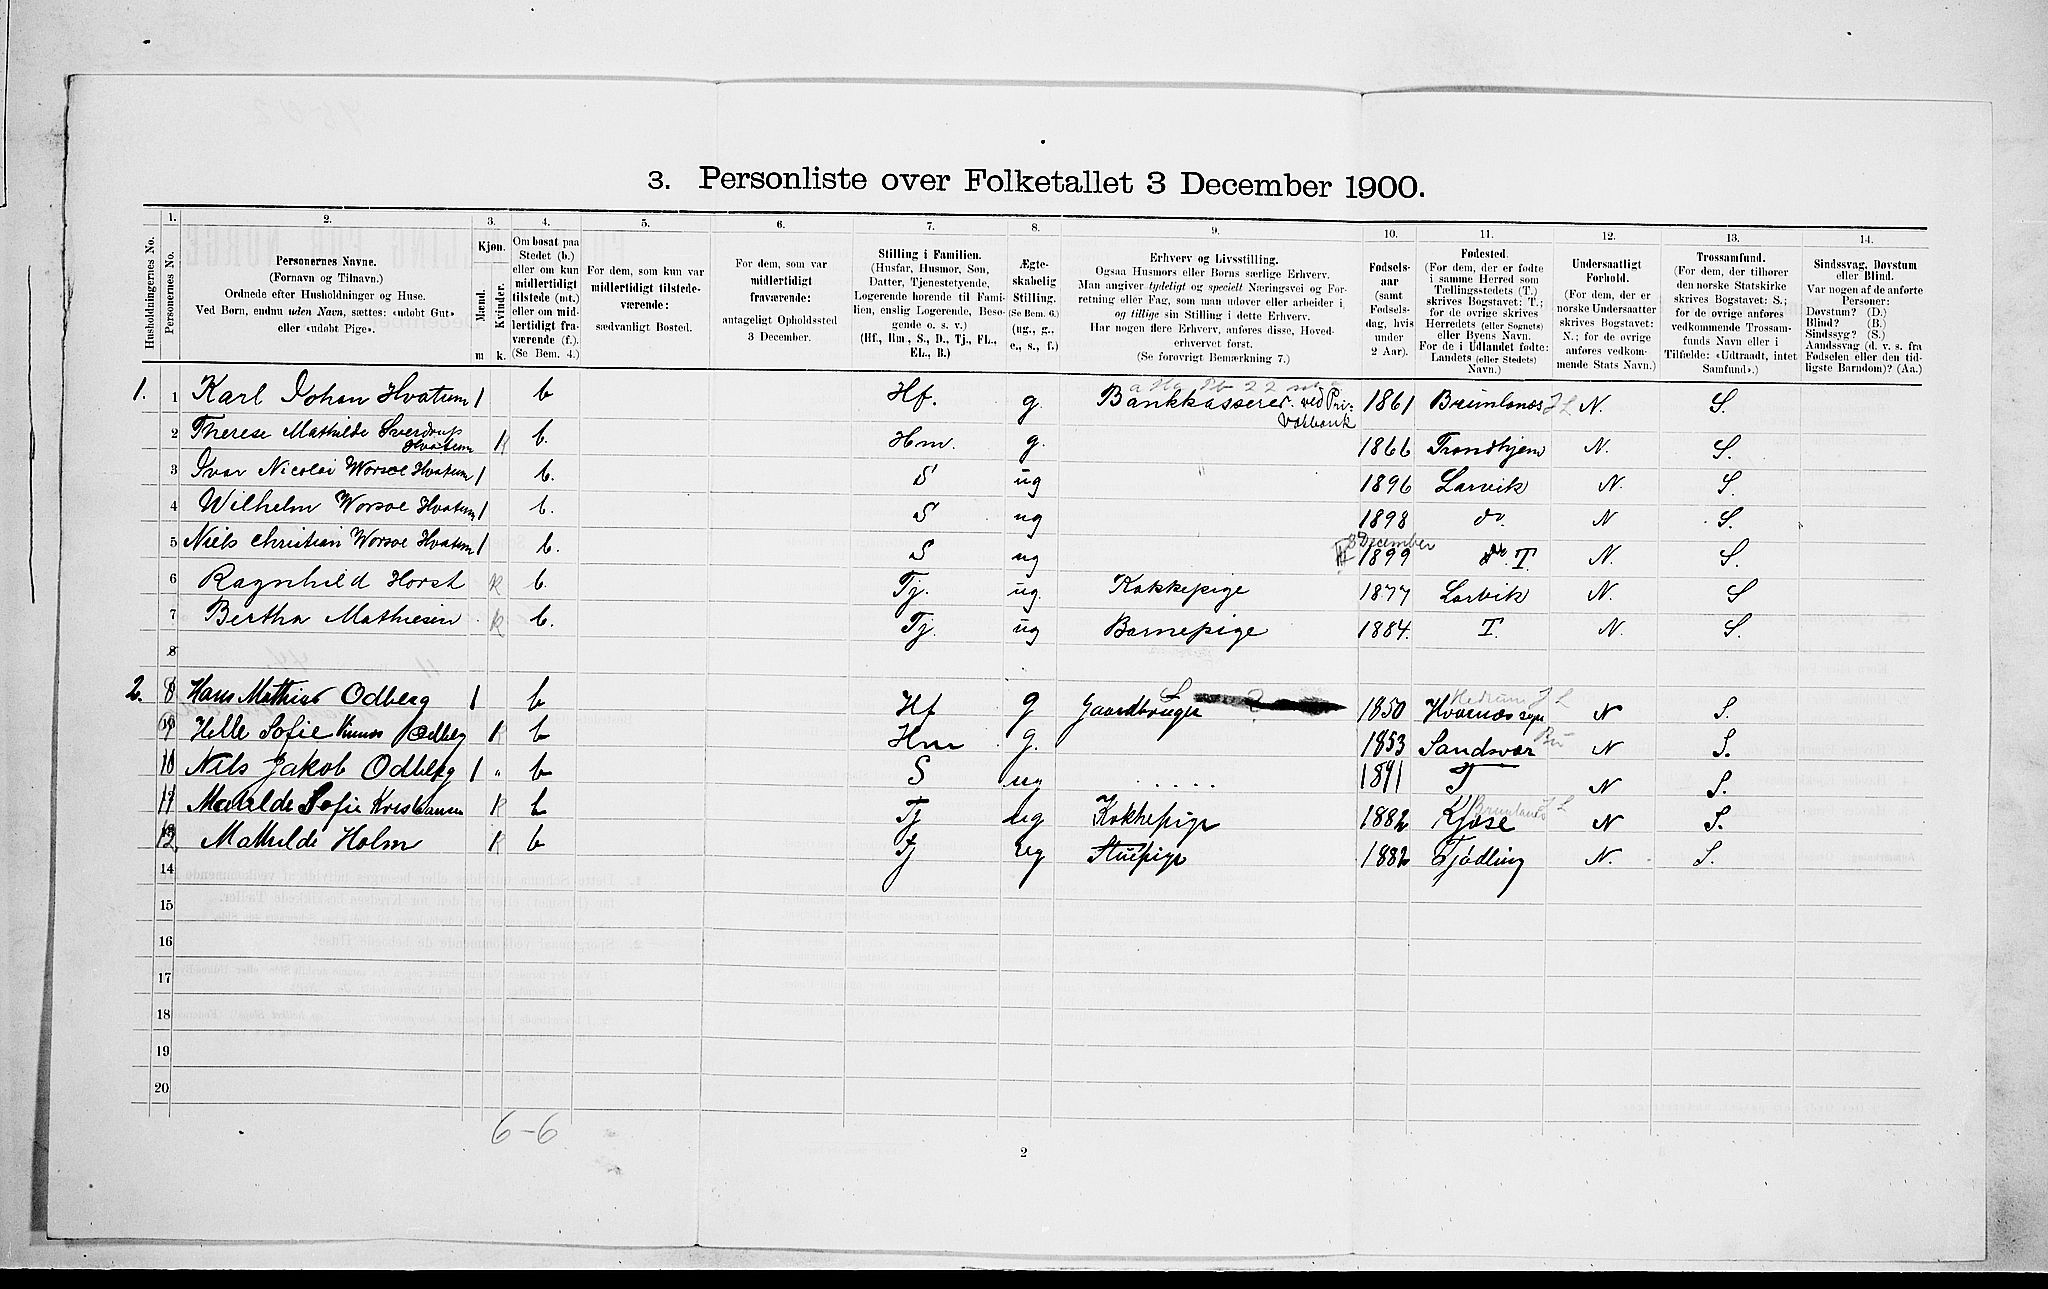 3. Personliste over Folketallet 3 December 1900.
Husholdningernes No.
1.
Personernes No.
2.
Personernes Navne.
(Fornavn og Tilnavn.)
Ordnede efter Husholdninger og Huse.
Ved Børn, endnu uden Navn, sættes: «udøbt Gut»
eller «udøbt Pige».
3.
Kjøn.
Mænd.
Kvinder.
m k.
4.
Om bosat paa
Stedet (b.)
eller om kun
midlertidigt
tilstede (mt.)
eller om mid-
lertidigt fra-
værende (f.).
(Se Bem. 4.)
5.
For dem, som kun var
midlertidigt tilstede-
værende:
sædvanligt Bosted.
6.
For dem, som var
midlertidigt
fraværende:
antageligt Opholdssted
3 December.
7.
Stilling i Familien.
(Husfar, Husmor, Søn,
Datter, Tjenestetyende,
Logerende hørende til Fami-
lien, enslig Logerende, Besø-
gende o. s. v.)
(Hf., Hm., S., D., Tj., FL.,
EL., B.)
8.
Ægte-
skabelig
Stilling.
(Se Bem. 6.)
(ug., g.,
e., s., f.)
9.
Erhverv og Livsstilling.
Ogsaa Husmors eller Børns særlige Erhverv.
Man angiver tydeligt og specielt Næringsvei og For-
retning eller Fag, som man udøver eller arbeider i,
og tillige sin Stilling i dette Erhverv.
Har nogen flere Erhverv, anføres disse, Hoved-
erhvervet først.
(Se forøvrigt Bemærkning 7.)
10.
Fødsels-
aar
(samt
Fødsels-
dag, hvis
under
2 Aar).
11.
Fødested.
(For dem, der er fødte
i samme Herred som
Tællingsstedets (T.)
skrives Bogstavet: T.;
for de øvrige skrives
Herredets (eller Sognets)
eller Byens Navn.
For de i Udlandet fødte:
Landets (eller Stedets)
Navn.)
12.
Undersaatligt
Forhold.
(For dem, der er
norske Undersaatter
skrives Bogstavet:
N.; for de øvrige
anføres vedkom-
mende Stats Navn.)
13.
Trossamfund.
(For dem, der tilhører
den norske Statskirke
skrives Bogstavet: S.;
for de øvrige anføres
vedkommende Trossam-
funds Navn eller i
Tilfælde: «Udtraadt, intet
Samfund».)
14.
Sindssvag, Døvstum
eller Blind.
Var nogen af de anførte
Personer:
Døvstum? (D.)
Blind? (B.)
Sindssyg? (S.)
Aandssvag (d. v. s. fra
Fødselen eller den tid-
ligste Barndom)? (Aa.)
1. 1 Karl Johan Hvatum 1 b Hf. g. Bankkasserer ved Pri- 1861 Brunlanes J L N. S.
vatbank
2 Therese Mathilde Sverdrup
Hvatum K b. Hm. g. 1866 Trondhjem N. S.
3 Ivar Nicolai Worsoe Hvatum 1 b. S ug 1896 Larvik N. S.
4 Wilhelm Worsoe Hvatum 1 b. S ug 1898 do. N S.
5 Niels Christian Worsoe Hvatum 1 b. S ug 8 December 1899 T. N. S.
6 Ragnhild Horst K b. Tj. ug. Kokkepige 1877 Larvik N. S
7 Bertha Mathiesen K b. Tj. ug Barnepige 1884. T. N. S.
8
2. 8 Hans Mathias Odberg 1 b Hf g Gaardbruger 1850 Hedrum J L Hvarnæs N S.
9 Helle Sofie Odberg K b Hm g. 1853 Sandsvær Bu N S.
10 Nils Jakob Odberg 1 b S ug 1891 T N S.
11 Sofie Kristiansen K b Tj ug Kokkepige 1882 Kjose Brunlanes J L N S.
12 Mathilde Holm K b Tj ug Stuepige 1882 Tjødling N. S.
14
15
16
17
18
19
20
6-6
2